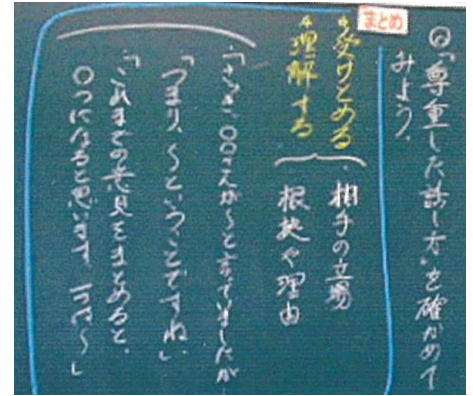 ◎「尊重した話し方」を確かめて
みよう。
まとめ
受けとめる
理解する
相手の立場
根拠や理由
「さっき、〇〇さんが〜と言っていましたが
「つまり、〜ということですね。
「これまでの意見をまとめると、
〇つになると思います。一つは〜」